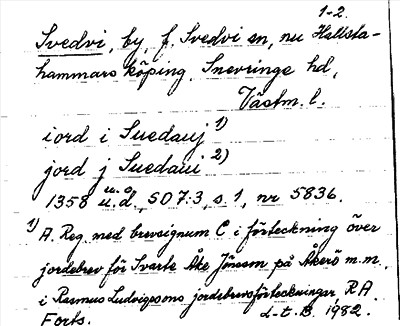 1-2.
Svedvi, by, f. Svedvi sn, nu Hallsta-
hammars köping, Snevringe hd,
Västm. l.
iord i Suedauj 1)
jord j Suedaui 2)
1358 u.å. u.d., SD 7:3, s. 1, nr 5836.
1) A. Reg. med brevsignum C i förteckning över
jordebrev för Svarte Åke Jönsson på Åkerö m.m.
i Rasmus Ludvigssons jordebrevsförteckningar RA.
Forts. L-t. B. 1982.